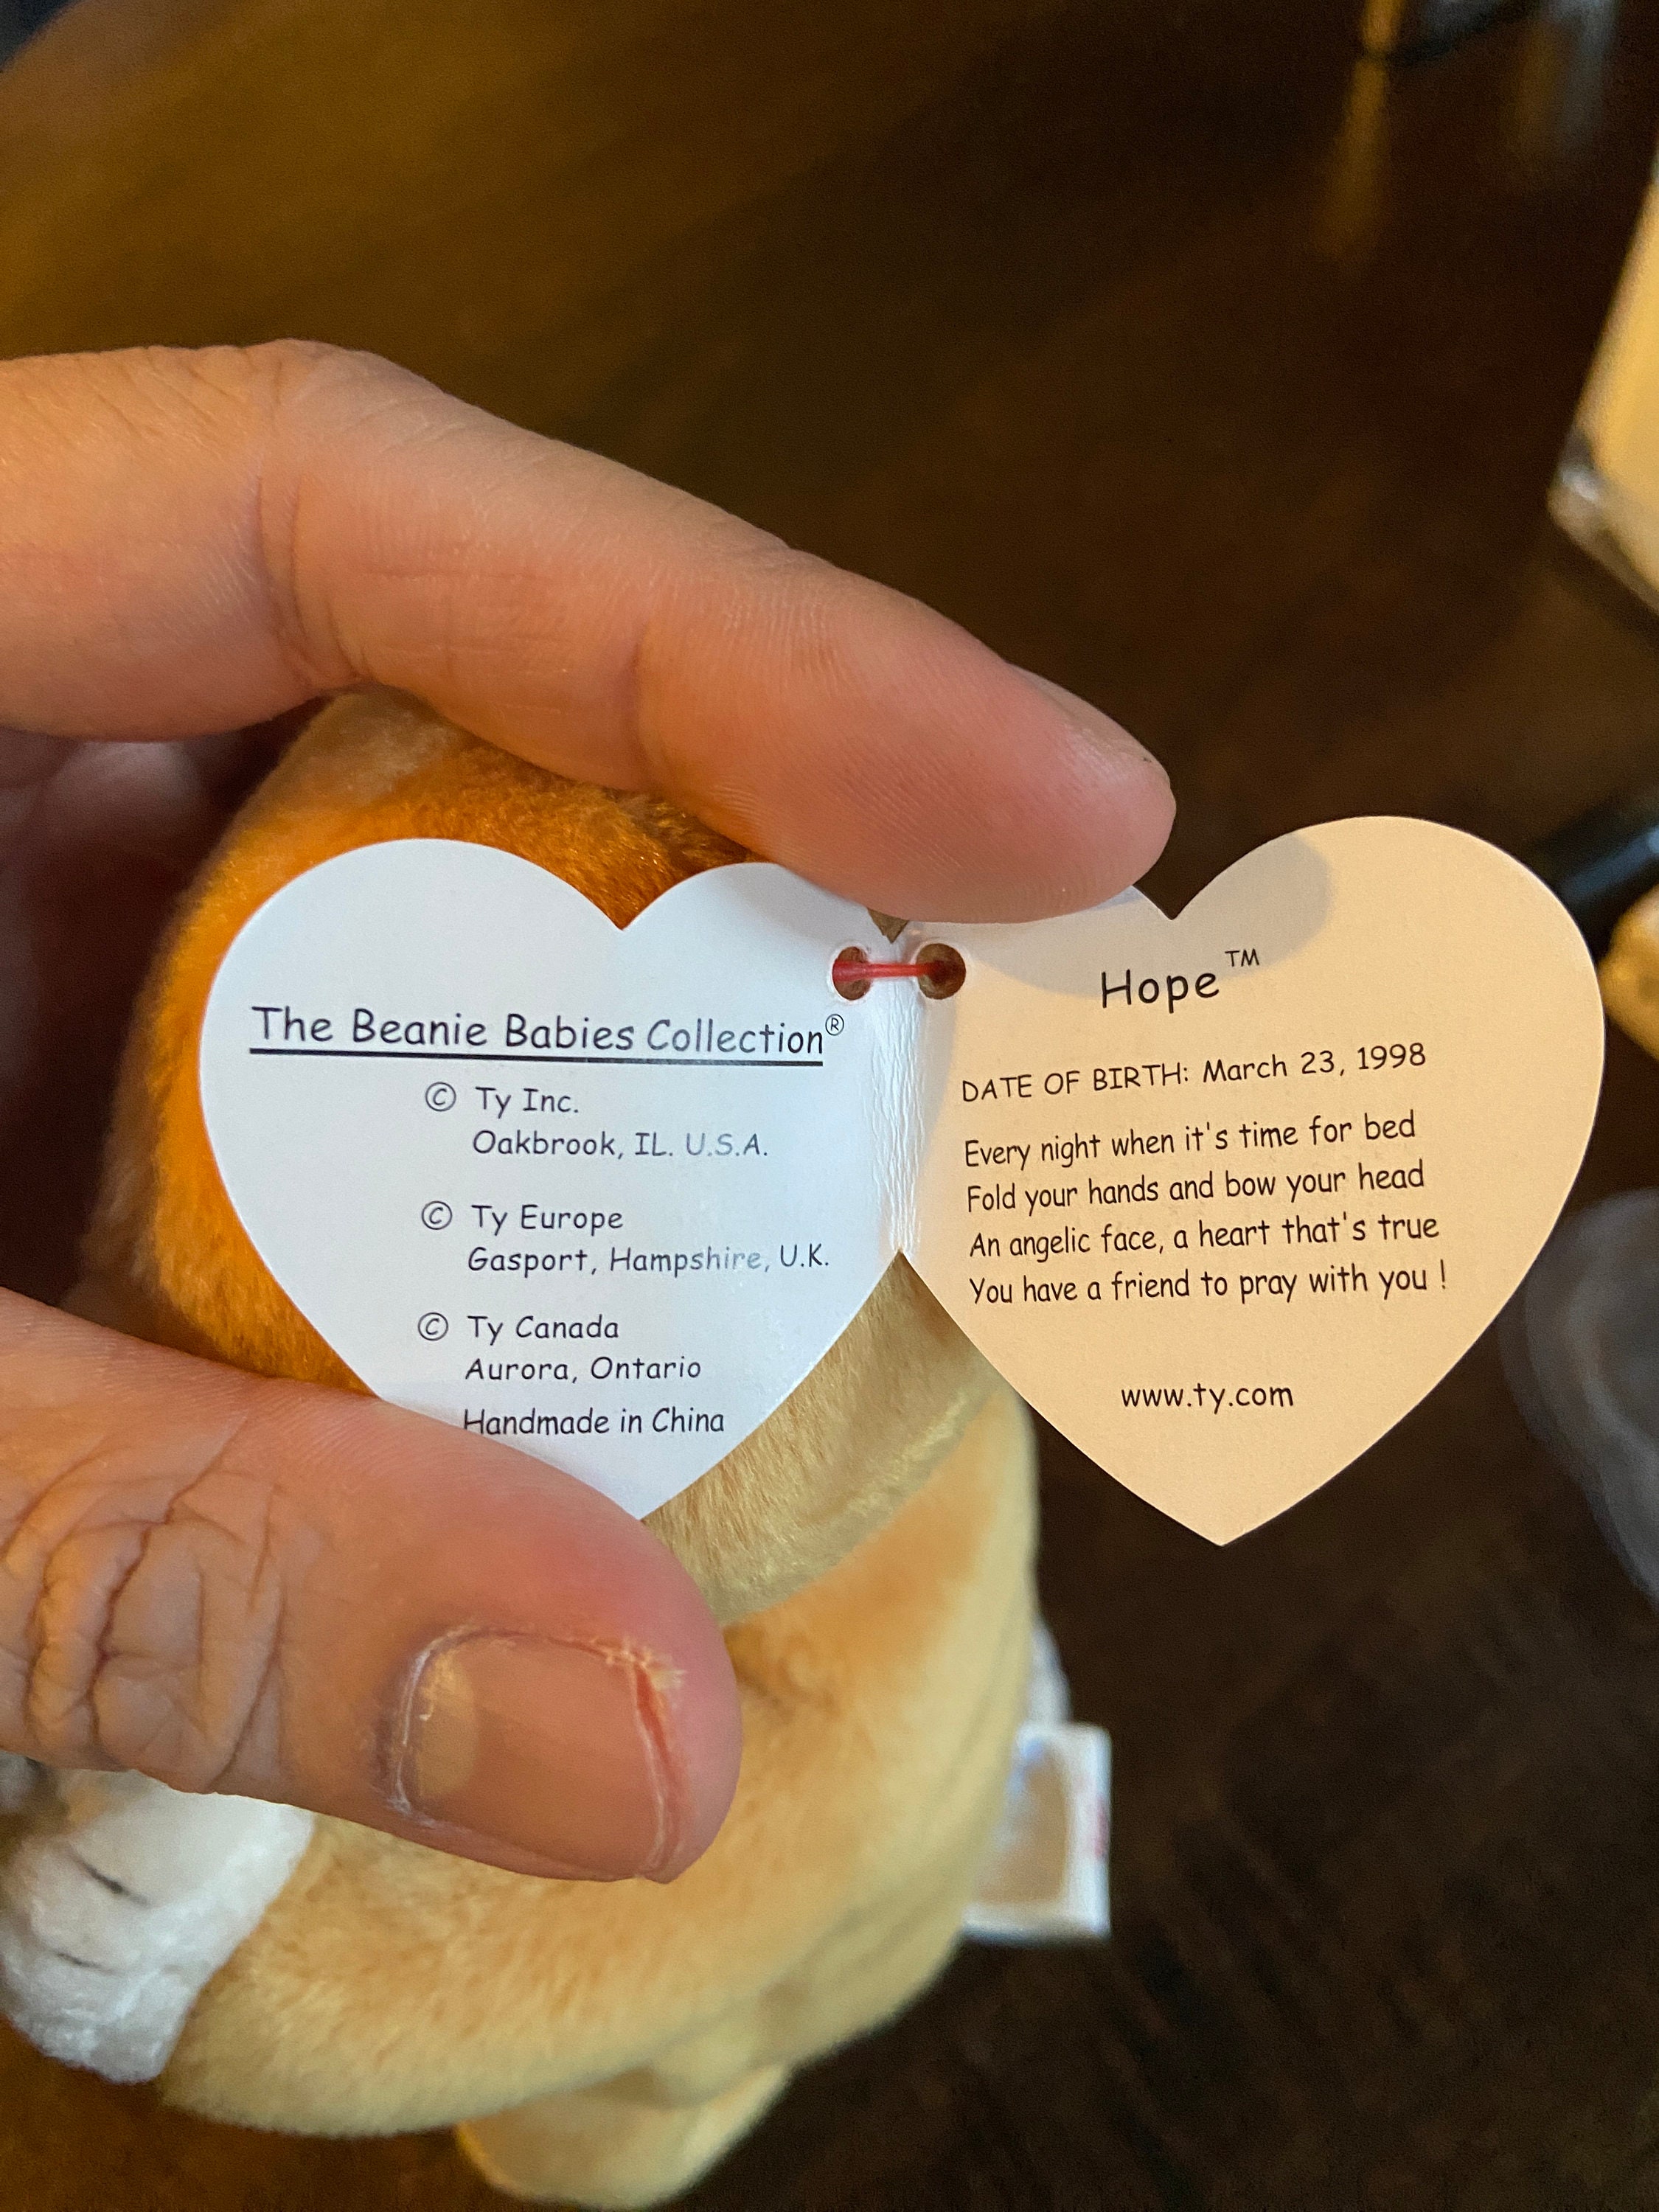 The Beanie Babies Collection®
© Ty Inc.
Oakbrook, IL. U.S.A.
© Ty Europe
Gasport, Hampshire, U.K.
© Ty Canada
Aurora, Ontario
Handmade in China
Hope™
DATE OF BIRTH: March 23, 1998
Every night when it's time for bed
Fold your hands and bow your head
An angelic face, a heart that's true
You have a friend to pray with you !
www.ty.com